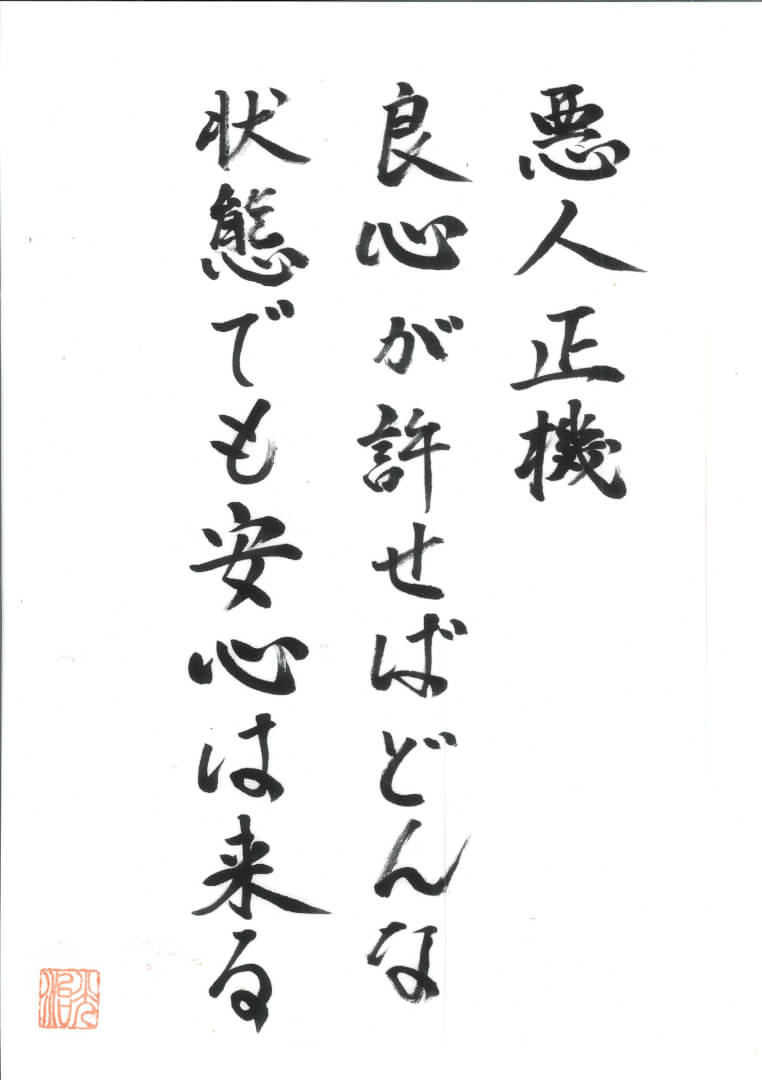 悪人正機
良心が許せばどんな
状態でも安心は来る